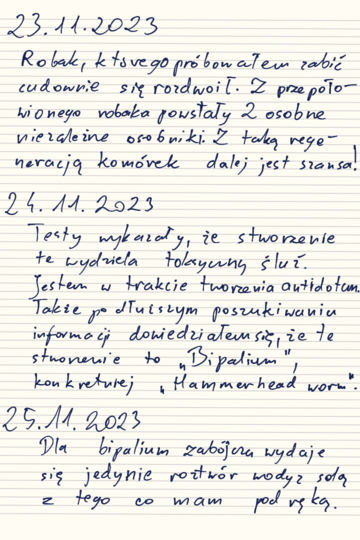 23.11.2023
Robak, którego próbowałem zabić
cudownie się rozdwoił. Z przepoło-
wionego robaka powstały 2 osobne
niezależne osobniki. Z taką rege-
neracją komórek dalej jest szansa!
24.11.2023
Testy wykazały, że stworzenie
te wydziela toksyczną śluź.
Jestem w trakcie tworzenia antidotum.
Także po dłuższym poszukiwaniu
informacji dowiedziałem się, że te
stworzenie to „Bipalium",
konkretniej „Hammerhead worm".
25.11.2023
Dla bipalium zabójcza wydaje
się jedynie roztwór wody z solą
z tego co mam pod ręką.